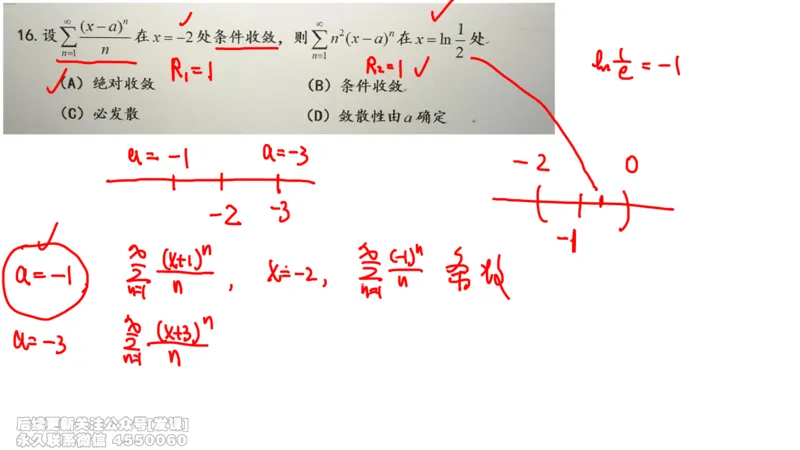 16. 设 $\sum_{n=1}^{\infty} \frac{(x-a)^n}{n}$ 在 x = −2 处条件收敛，则 $\sum_{n=1}^{\infty} n^2(x-a)^n$ 在 $x = \ln\frac{1}{2}$ 处
R₁=1 R₂=1
(A) 绝对收敛 (B) 条件收敛
(C) 必发散 (D) 敛散性由 a 确定
$\ln\frac{1}{e} = -1$
a=-1 a=-3
-2 -3
-2 0
-1
a=-1 $\sum_{n=1}^{\infty} \frac{(x+1)^n}{n}$, x=-2, $\sum_{n=1}^{\infty} \frac{(-1)^n}{n}$ 条收
a=-3 $\sum_{n=1}^{\infty} \frac{(x+3)^n}{n}$
后续更新关注公众号[发课]
永久联系微信 4550060